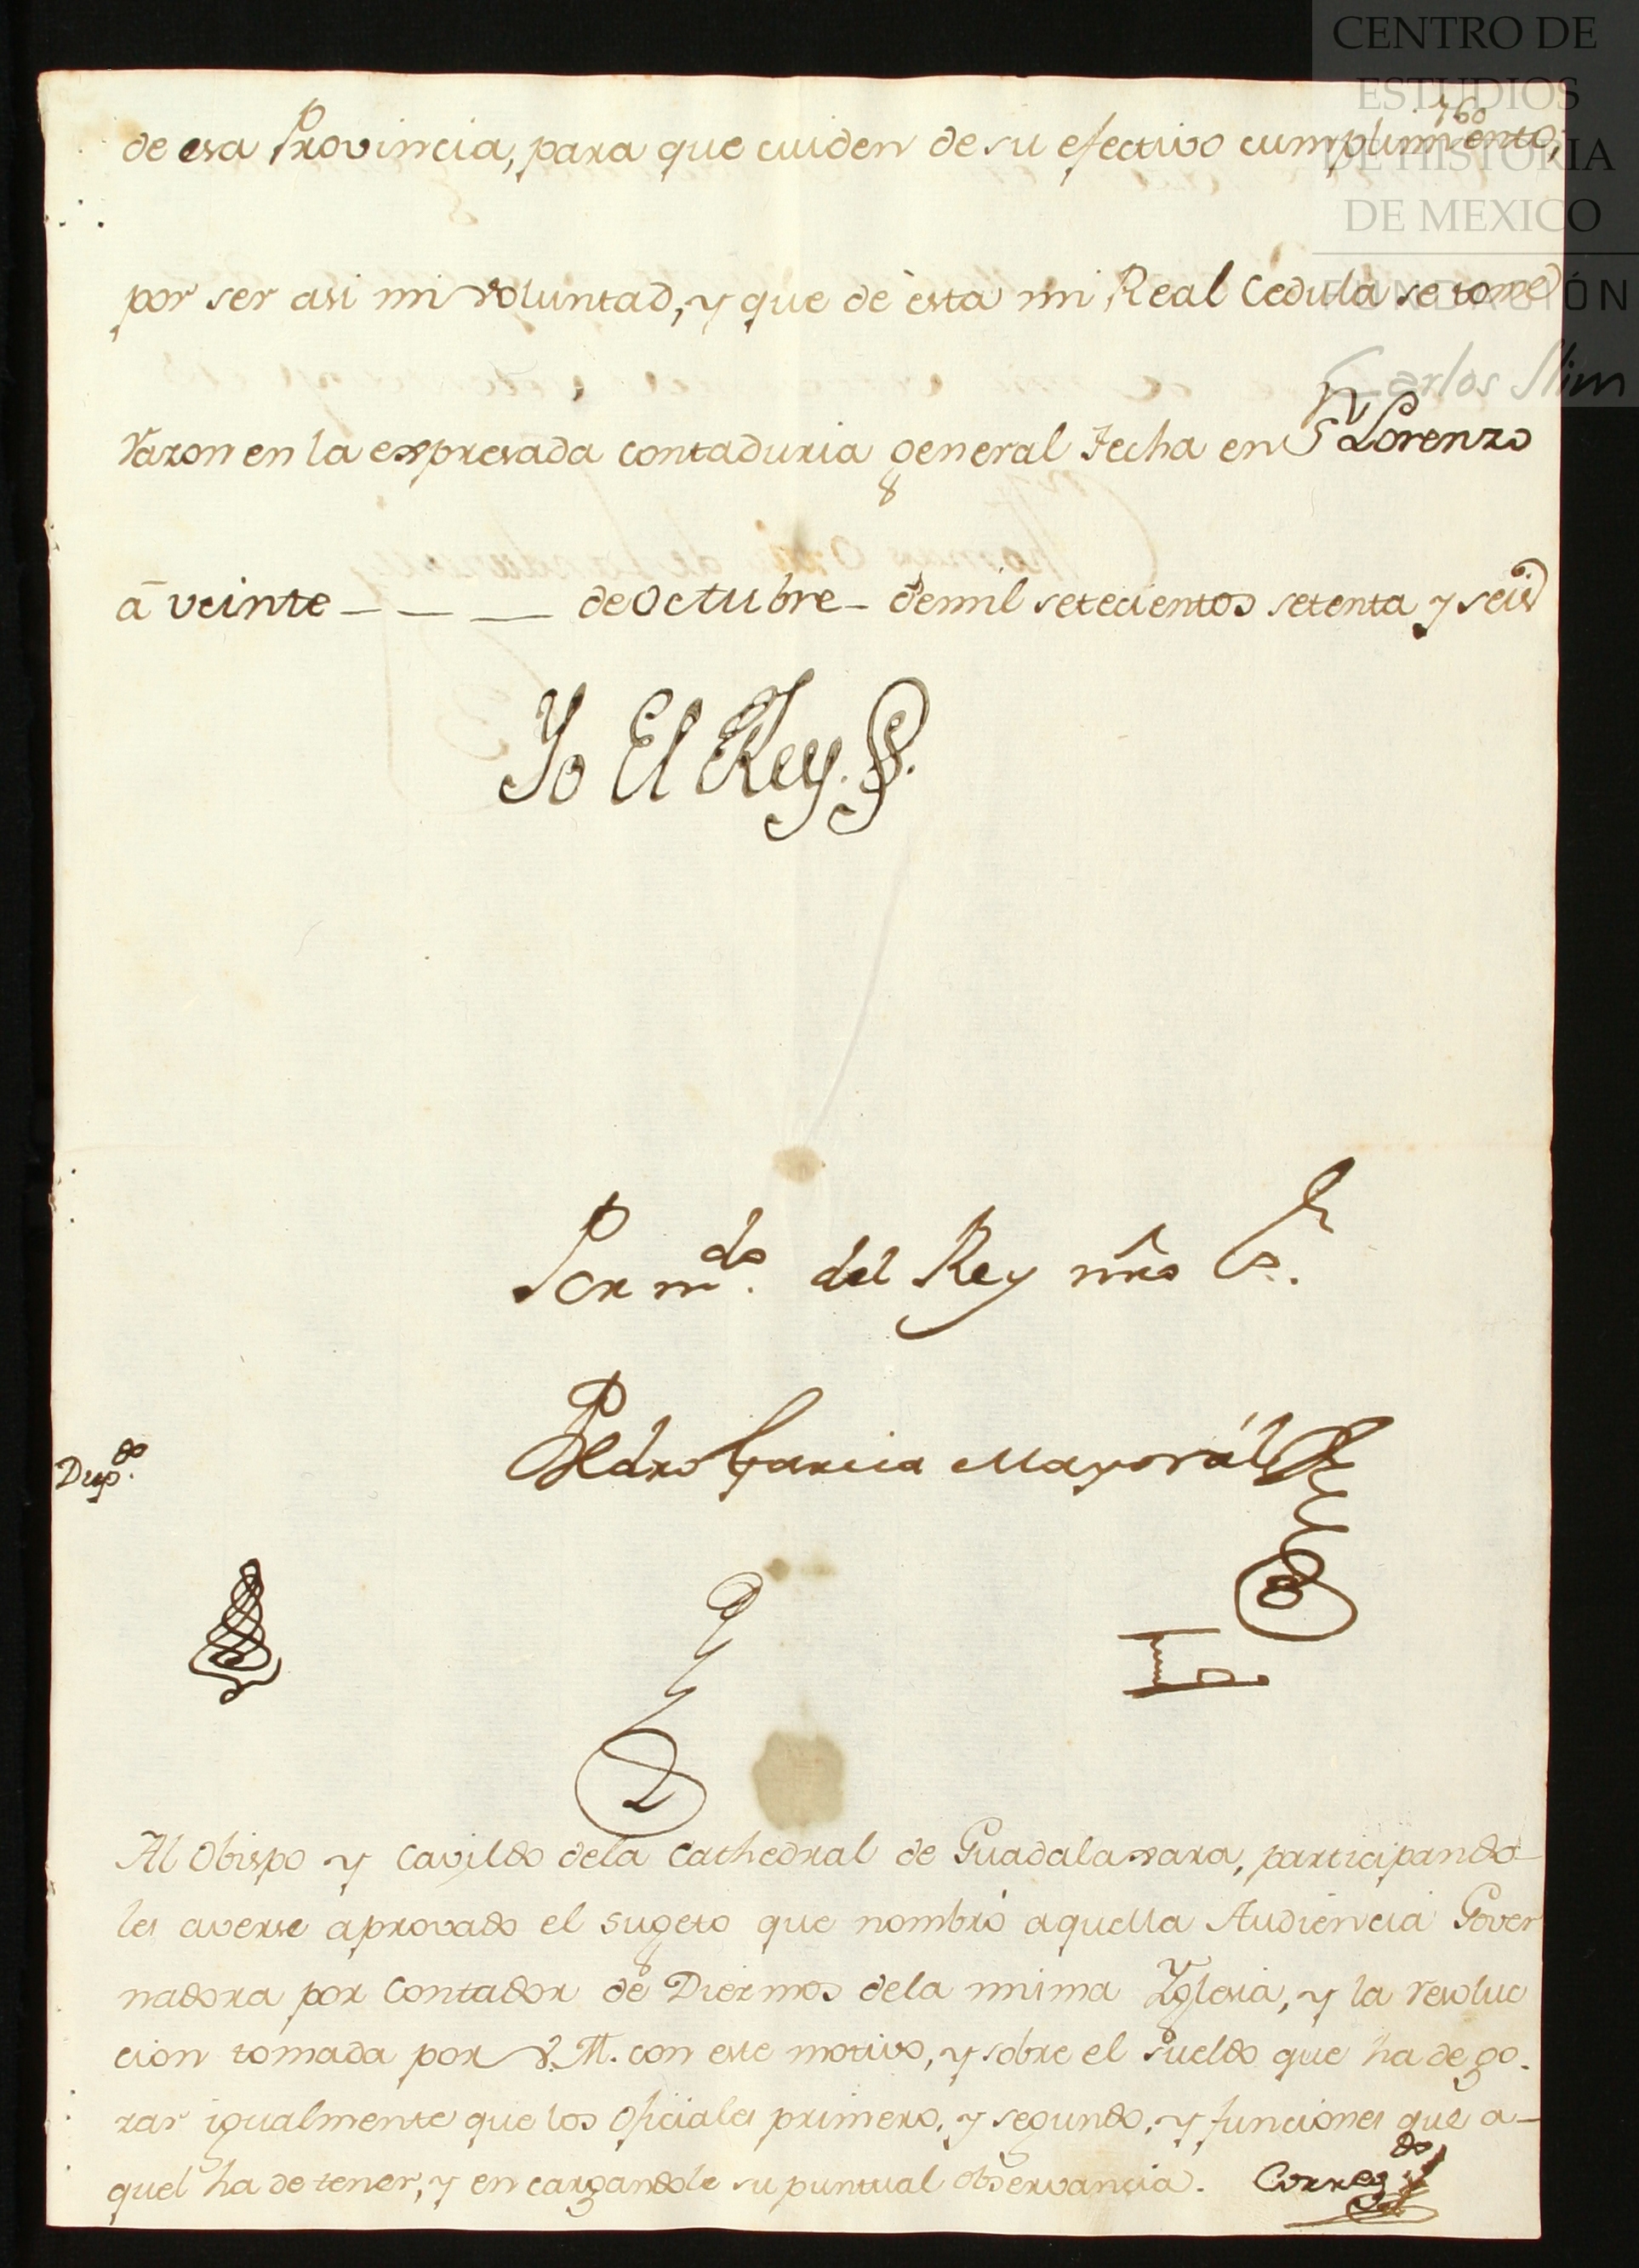 CENTRO DE
ESTUDIOS
DE HISTORIA
DE MEXICO
FUNDACIÓN
Carlos Slim
160
de esa Provincia, para que cuiden de su efectivo cumplimiento,
por ser asi mi voluntad, y que de èsta mi Real Cedula se tome
razon en la expresada contaduria general Fecha en Sn Lorenzo
à veinte - - - de Octubre - de mil setecientos setenta y seis
Yo El Rey.
Por mdo. del Rey nr̃o Sr.
Pedro Garcia Mayorál
Dupdo.
Al Obispo y Cavildo dela Cathedral de Guadalaxara, participando-
les averse aprovado el sugeto que nombró aquella Audiencia Gover
nadora por Contador de Diezmos dela misma Yglesia, y la resoluc
cion tomada por V. M. con este motivo, y sobre el sueldo que ha de go.
zar igualmente que los Oficiales primero, y segundo, y funciones que a-
quel ha de tener, y encargandole su puntual observancia. Corregdo